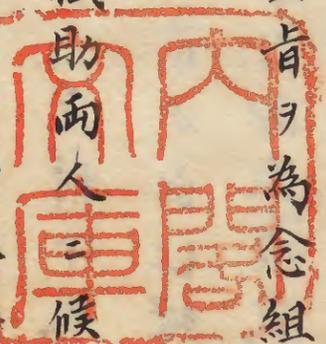 旨ヲ為念組
助両人ニ候
内閣
文庫